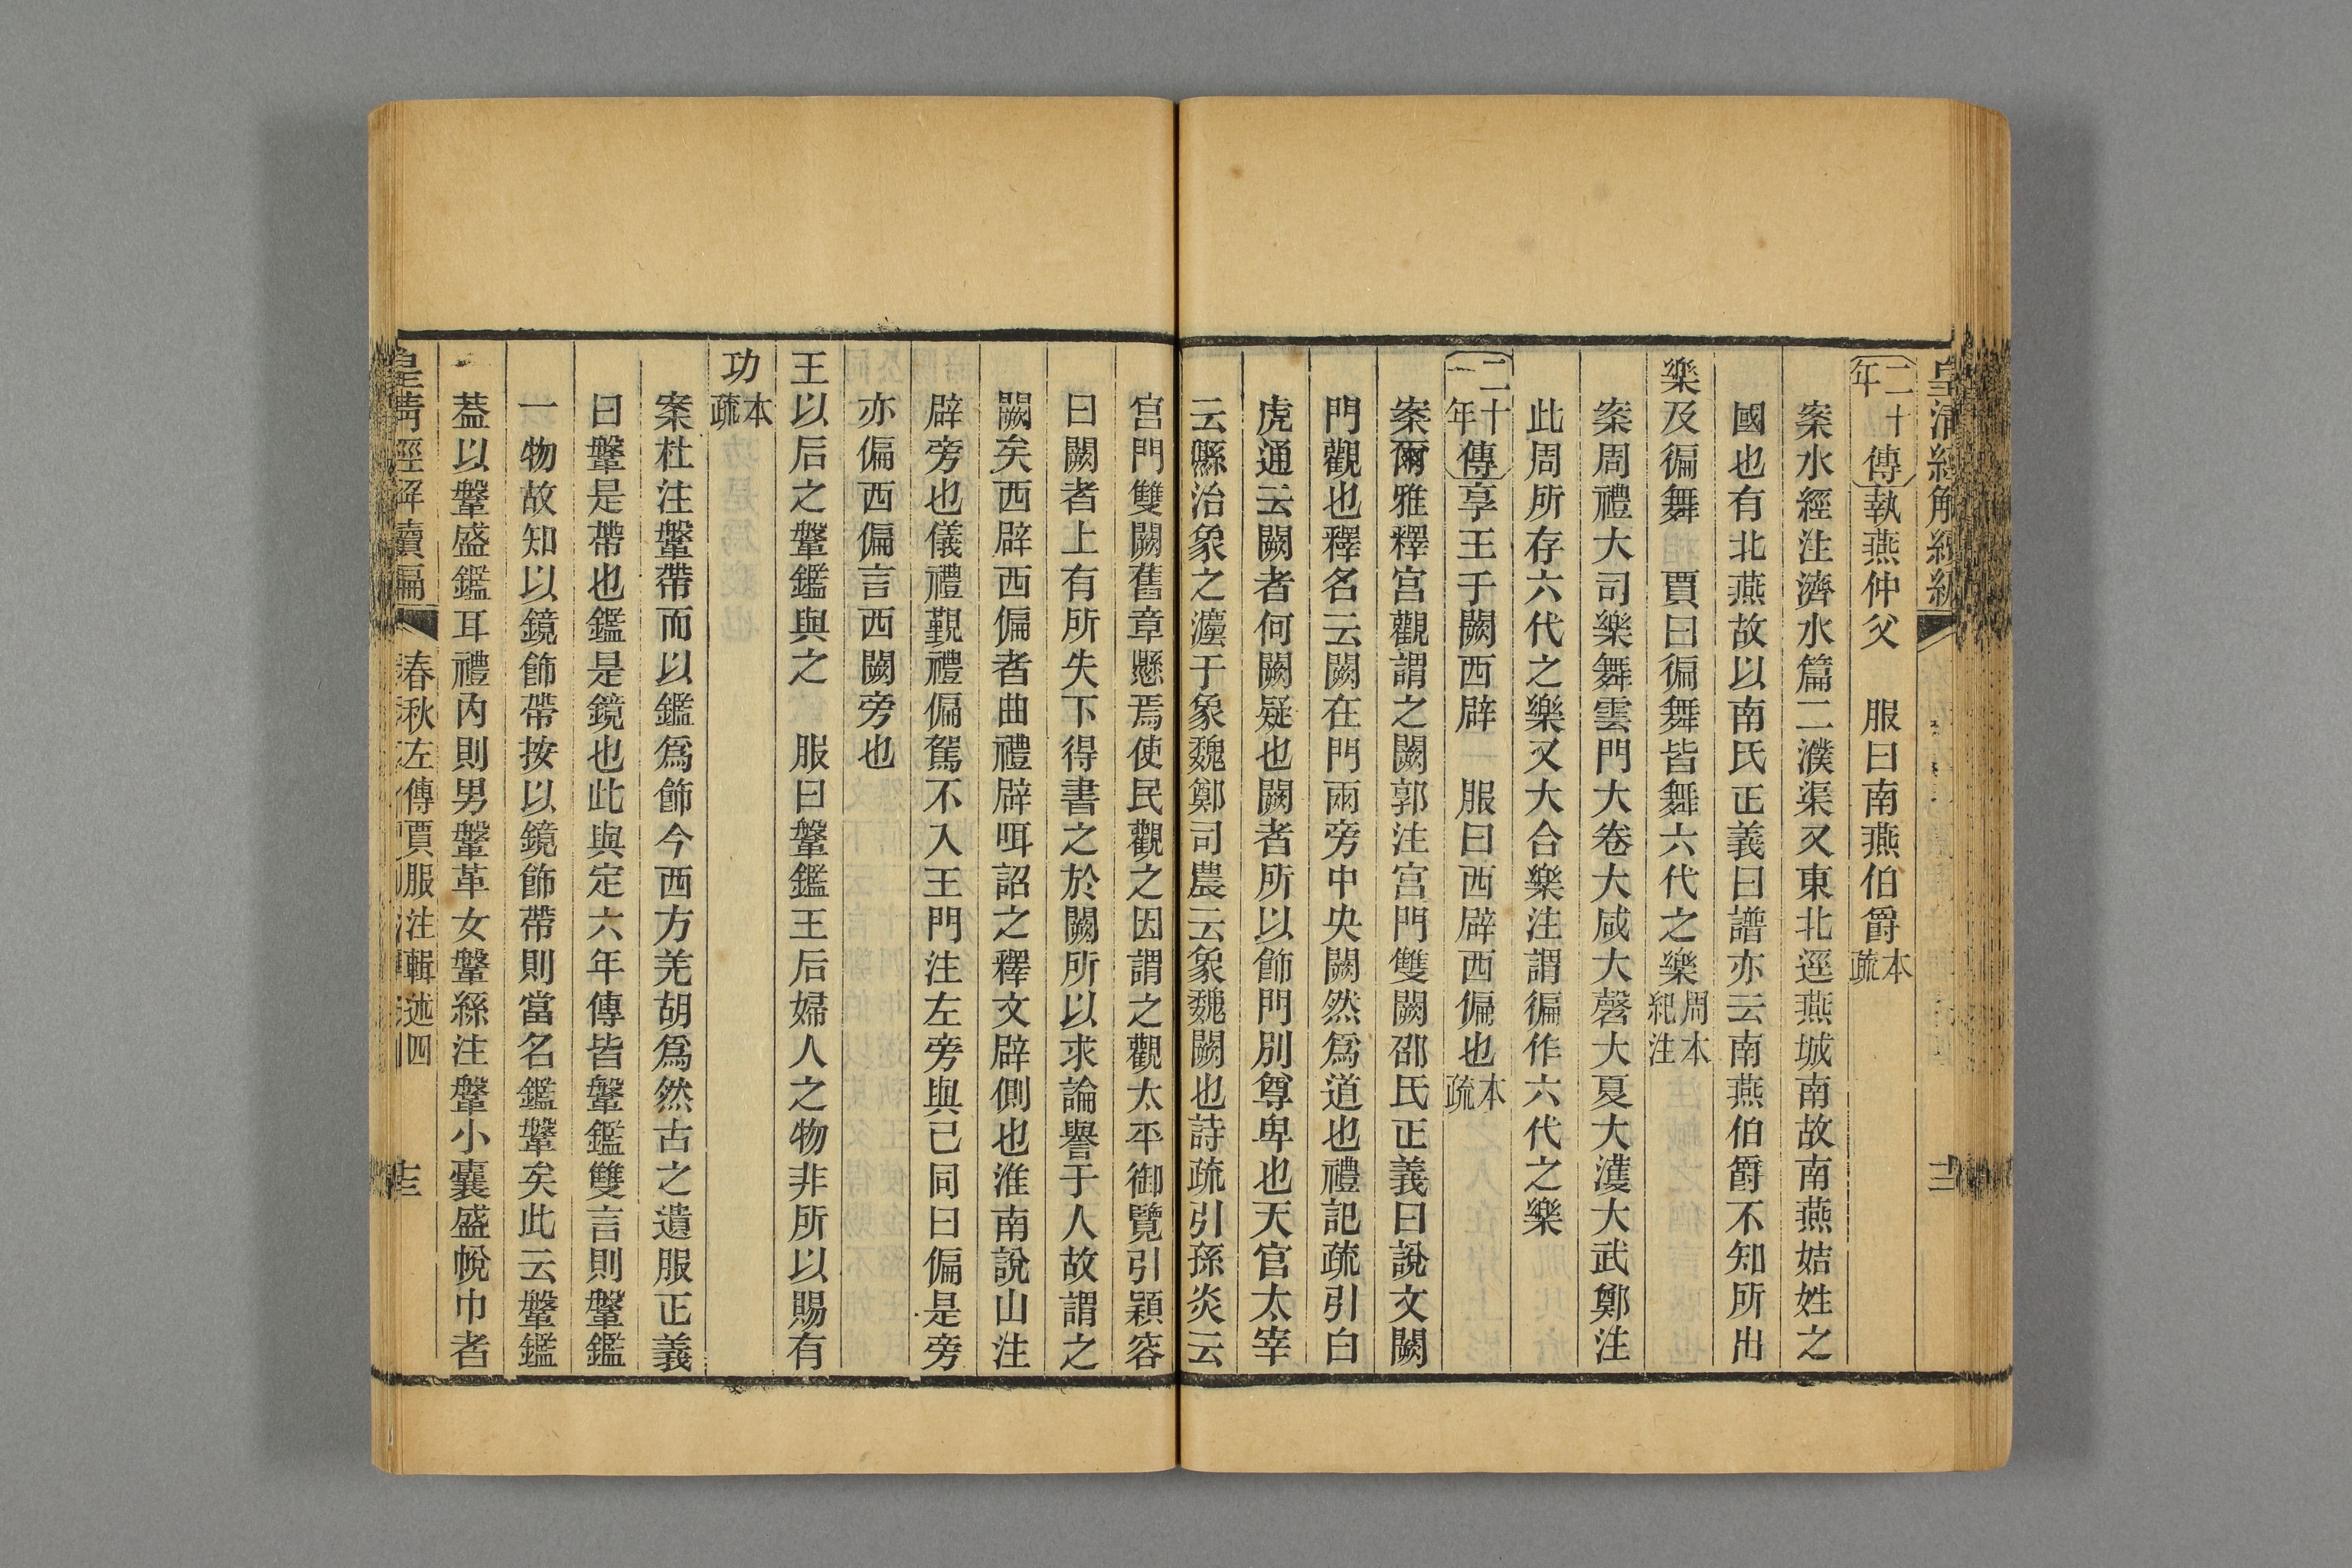 二十年傳執燕仲父　服曰南燕伯爵本疏
案水經注濟水篇二濮渠又東北逕燕城南故南燕姞姓之
國也有北燕故以南氏正義曰譜亦云南燕伯爵不知所出
樂及徧舞　賈曰徧舞皆舞六代之樂周本紀注
案周禮大司樂舞雲門大卷大咸大磬大夏大濩大武鄭注
此周所存六代之樂又大合樂注謂徧作六代之樂
二十一年傳享王于闕西辟　服曰西辟西偏也本疏
案爾雅釋宮觀謂之闕郭注宮門雙闕邵氏正義曰說文闕
門觀也釋名云闕在門兩旁中央闕然爲道也禮記疏引白
虎通云闕者何闕疑也闕者所以飾門別尊卑也天官太宰
云縣治象之灋于象魏鄭司農云象魏闕也詩疏引孫炎云
宮門雙闕舊章懸焉使民觀之因謂之觀太平御覽引穎容
曰闕者上有所失下得書之於闕所以求論譽于人故謂之
闕矣西辟西偏者曲禮辟咡詔之釋文辟側也淮南說山注
辟旁也儀禮覲禮偏駕不入王門注左旁與已同曰偏是旁
亦偏西偏言西闕旁也
王以后之鞶鑑與之　服曰鞶鑑王后婦人之物非所以賜有
功本疏
案杜注鞶帶而以鑑爲飾今西方羌胡爲然古之遺服正義
曰鞶是帶也鑑是鏡也此與定六年傳皆鞶鑑雙言則鞶鑑
一物故知以鏡飾帶按以鏡飾帶則當名鑑鞶矣此云鞶鑑
葢以鞶盛鑑耳禮內則男鞶革女鞶絲注鞶小囊盛帨巾者
皇清經解續編　春秋左傳賈服注輯述四　十三